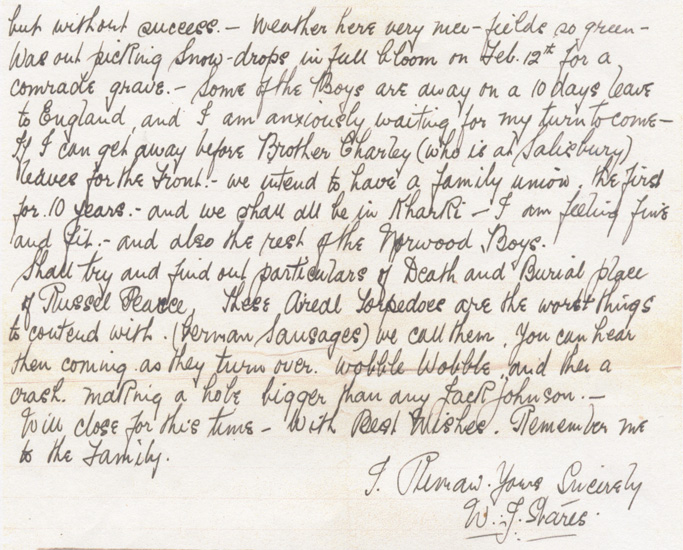 but without success. — Weather here very nice - fields so green -
Was out picking Snow-drops in full bloom on Feb. 12th for a
comrade grave. - Some of the Boys are away on a 10 days leave
to England, and I am anxiously waiting for my turn to come —
If I can get away before Brother Charley (who is at Salisbury)
leaves for the Front. - we intend to have a family union, the first
for 10 years. - and we shall all be in Kharki — I am feeling fine
and fit. - and also the rest of the Norwood Boys.
Shall try and find out particulars of Death and Burial place
of Russel Pearce, These Aireal Torpedoes are the worst things
to contend with. (German Sausages) we call them. You can hear
then coming as they turn over. Wobble Wobble, and then a
crash. making a hole bigger than any Jack Johnson. —
Will close for this time - With Best Wishes. Remember me
to the Family.
I. Remain. Yours Sincirely
W. J. Stares.